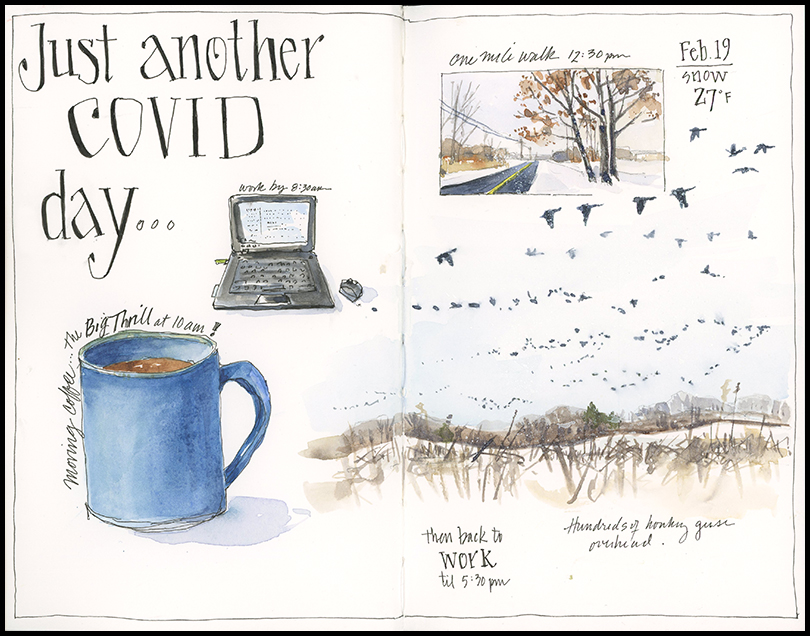 Just another
COVID
day...
work by 8:30am
morning coffee... the Big Thrill at 10am!
one mile walk 12:30pm
Feb. 19
snow
27°F
Hundreds of honking geese
overhead.
then back to
WORK
til 5:30pm